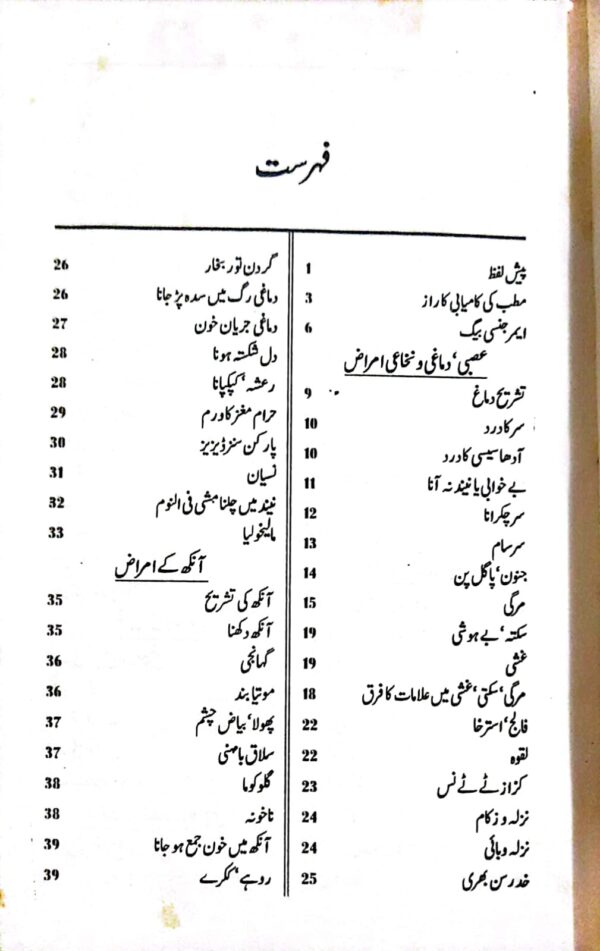 فہرست
پیش لفظ 1
مطب کی کامیابی کا راز 3
ایمر جنسی بیگ 6
عصبی، دماغی و نخاعی امراض
تشریح دماغ 9
سر کا درد 10
آدھا سیسی کا درد 10
بے خوابی یا نیند نہ آنا 11
سر چکرانا 12
سرسام 13
جنون، پاگل پن 14
مرگی 15
سکتہ، بے ہوشی 19
غشی 19
مرگی، سکتی، غشی میں علامات کا فرق 18
فالج، استرخا 22
لقوہ 22
کزاز ٹے ٹے نس 23
نزلہ و زکام 24
نزلہ وبائی 24
خدر سن بھری 25
گردن توڑ بخار 26
دماغی رگ میں سدہ پڑ جانا 26
دماغی جریان خون 27
دل شکستہ ہونا 28
رعشہ، کپکپانا 28
حرام مغز کا ورم 29
پارکن سنز ڈیزیز 30
نسیان 31
نیند میں چلنا مشی فی النوم 32
مالیخولیا 33
آنکھ کے امراض
آنکھ کی تشریح 35
آنکھ دکھنا 35
گہانجی 36
موتیا بند 36
پھولا، بیاض چشم 37
سلاق باہمنی 37
گلوکوما 38
ناخونہ 38
آنکھ میں خون جمع ہو جانا 39
روہے، ککرے 39